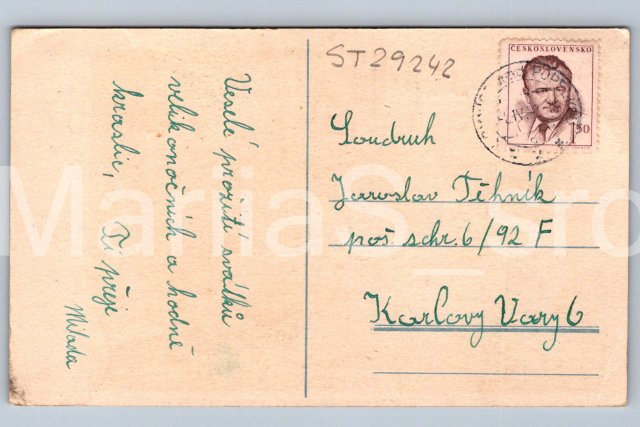 Veselé prožití svátků
velikonočních a hodně
kraslic, Ti přeje
Milada
ST29242
ČESKOSLOVENSKO
1.50
Soudruh
Jaroslav Těhník
poš. schr. 6/92 F
Karlovy Vary 6